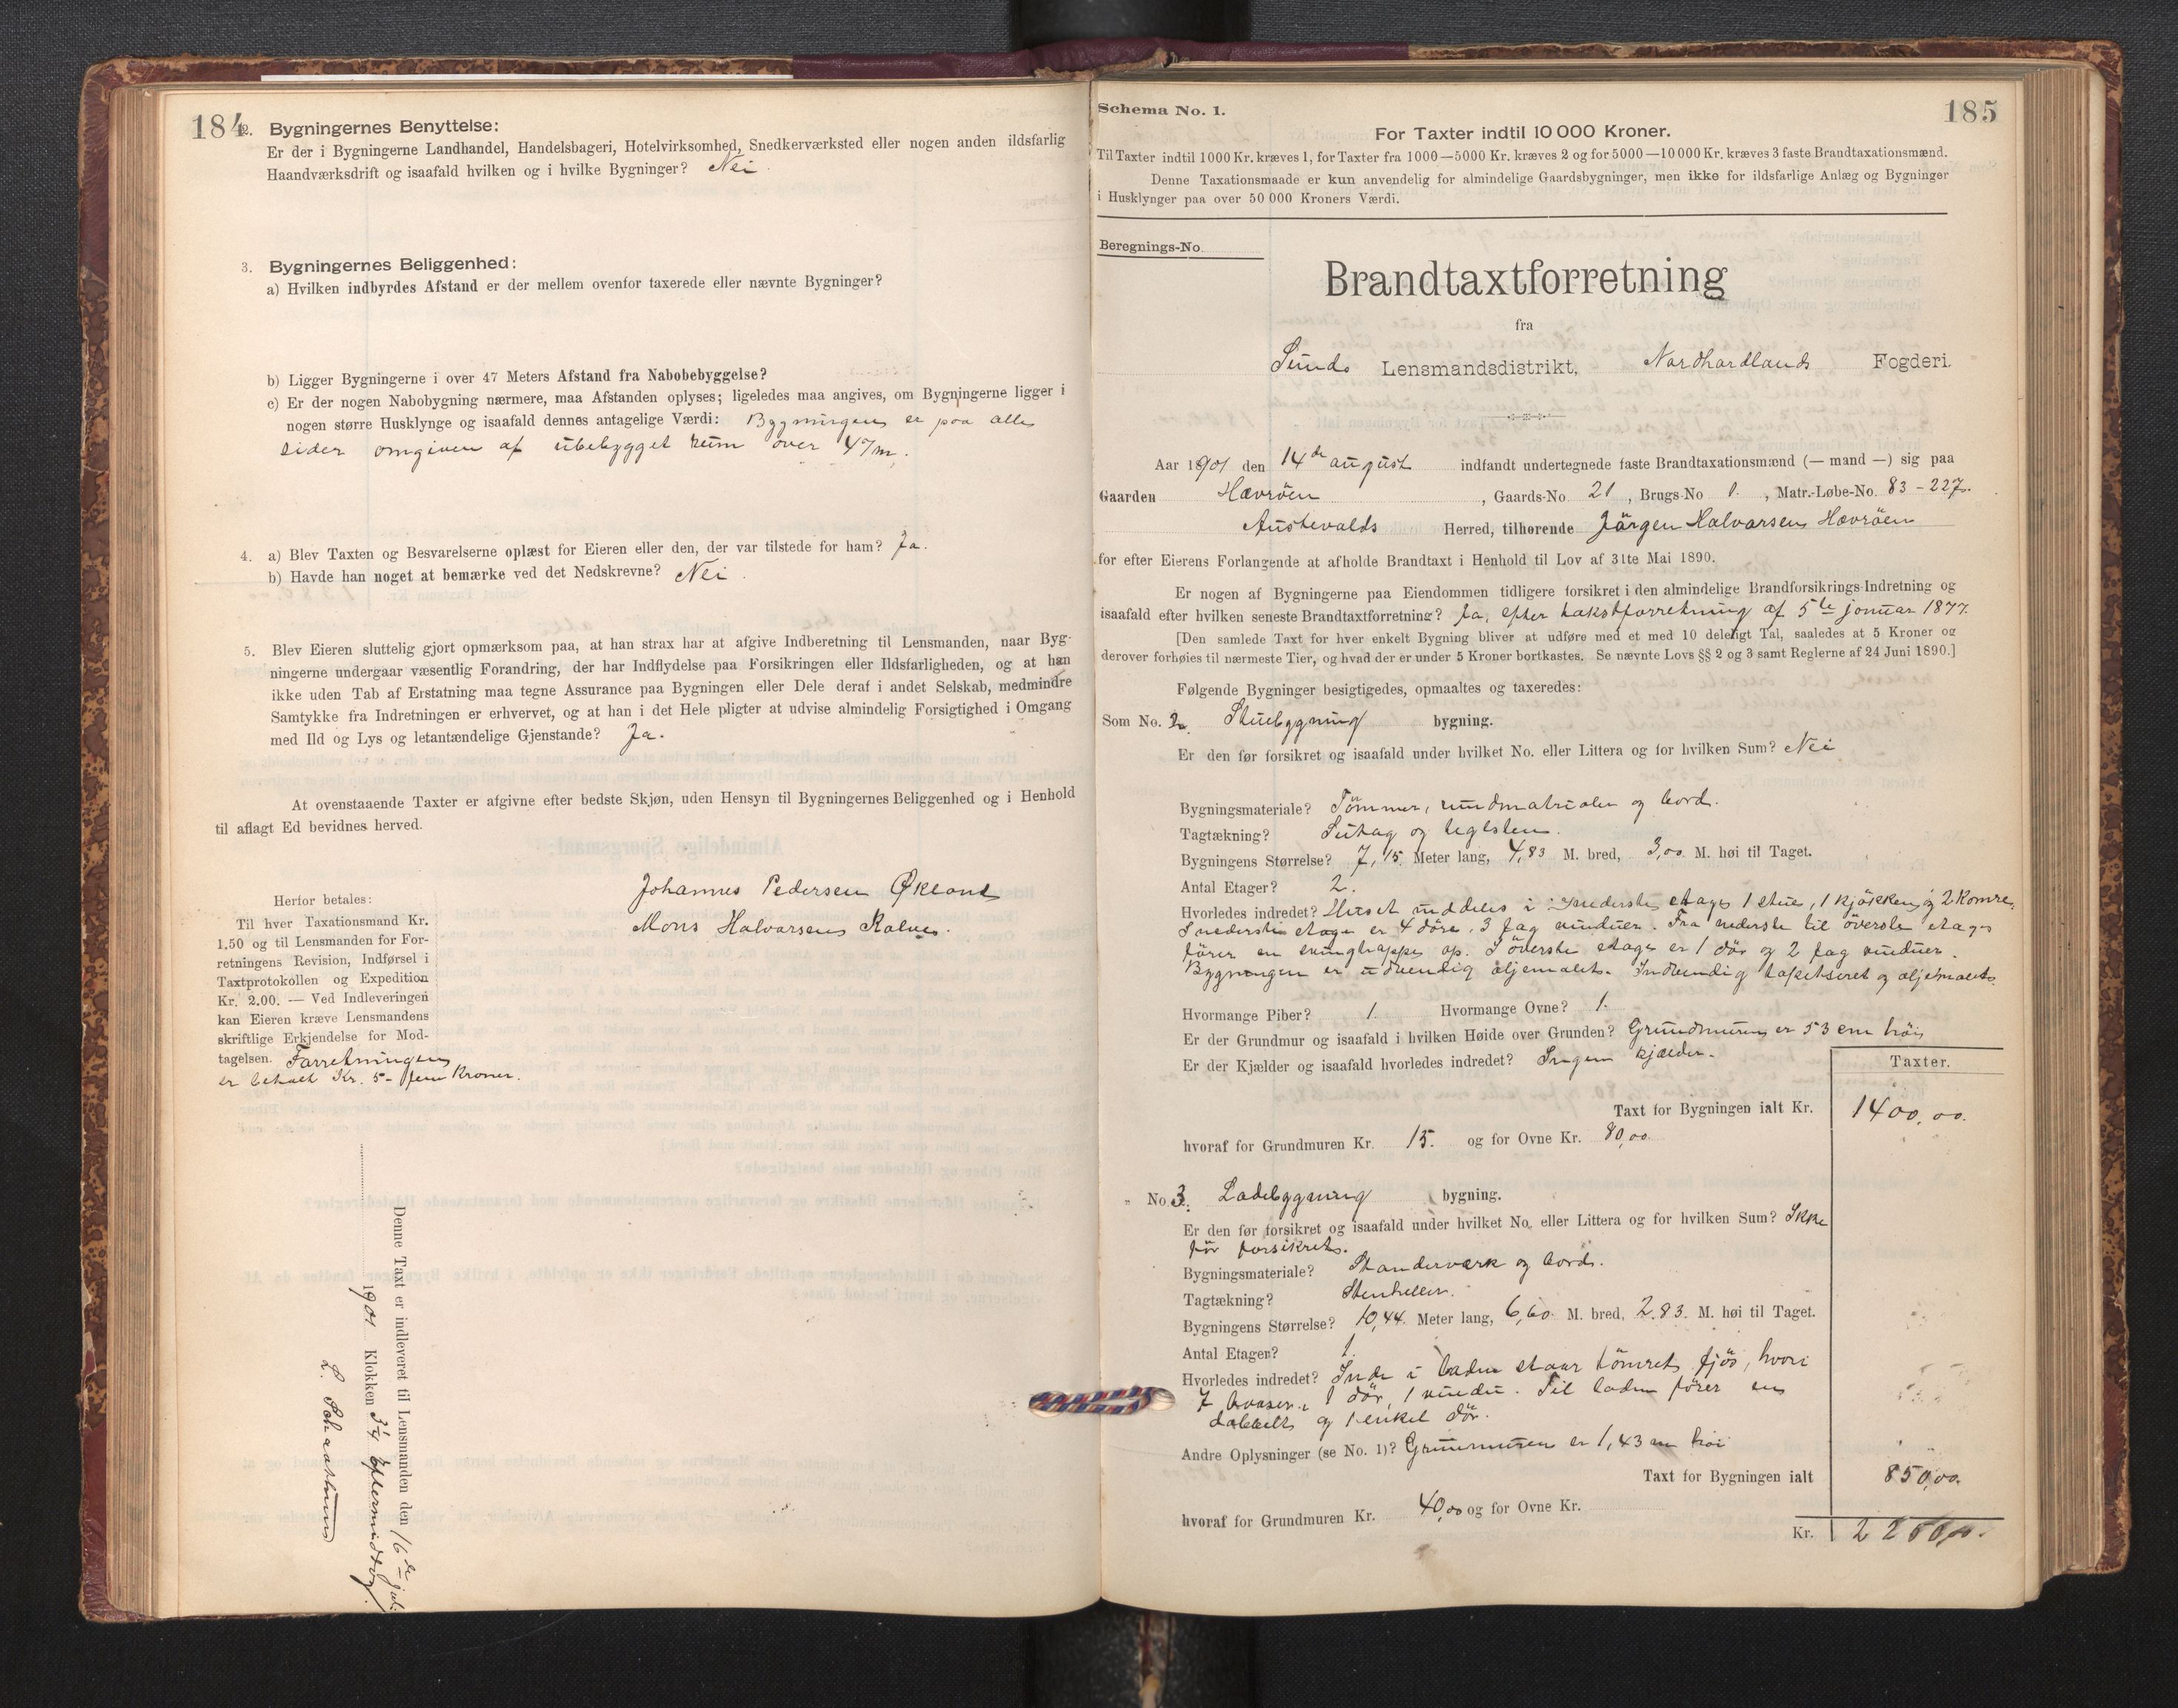 184
2. Bygningernes Benyttelse:
Er der i Bygningerne Landhandel, Handelsbageri, Hotelvirksomhed, Snedkerværksted eller nogen anden ildsfarlig
Haandværksdrift og isaafald hvilken og i hvilke Bygninger? Nei.
3. Bygningernes Beliggenhed:
a) Hvilken indbyrdes Afstand er der mellem ovenfor taxerede eller nævnte Bygninger?
b) Ligger Bygningerne i over 47 Meters Afstand fra Nabobebyggelse?
c) Er der nogen Nabobygning nærmere, maa Afstanden oplyses; ligeledes maa angives, om Bygningerne ligger i
nogen større Husklynge og isaafald dennes antagelige Værdi: Bygningen er paa alle
sider omgiven af ubebygget rum over 47 m.
4. a) Blev Taxten og Besvarelserne oplæst for Eieren eller den, der var tilstede for ham? Ja.
b) Havde han noget at bemærke ved det Nedskrevne? Nei.
5. Blev Eieren sluttelig gjort opmærksom paa, at han strax har at afgive Indberetning til Lensmanden, naar Byg-
ningerne undergaar væsentlig Forandring, der har Indflydelse paa Forsikringen eller Ildsfarligheden, og at han
ikke uden Tab af Erstatning maa tegne Assurance paa Bygningen eller Dele deraf i andet Selskab, medmindre
Samtykke fra Indretningen er erhvervet, og at han i det Hele pligter at udvise almindelig Forsigtighed i Omgang
med Ild og Lys og letantændelige Gjenstande? Ja.
At ovenstaaende Taxter er afgivne efter bedste Skjøn, uden Hensyn til Bygningernes Beliggenhed og i Henhold
til aflagt Ed bevidnes herved.
Johannes Pedersen Økland
Mons Halvorsen Kalve.
Herfor betales:
Til hver Taxationsmand Kr.
1.50 og til Lensmanden for For-
retningens Revision, Indførsel i
Taxtprotokollen og Expedition
Kr. 2.00. — Ved Indleveringen
kan Eieren kræve Lensmandens
skriftlige Erkjendelse for Mod-
tagelsen. Forretningen
er betalt Kr. 5 - fem Kroner.
Denne Taxt er indleveret til Lensmanden den 16de juli
1901 Klokken 3¼ Eftermiddag.
185
Schema No. 1.
For Taxter indtil 10 000 Kroner.
Til Taxter indtil 1000 Kr. kræves 1, for Taxter fra 1000—5000 Kr. kræves 2 og for 5000—10000 Kr. kræves 3 faste Brandtaxationsmænd.
Denne Taxationsmaade er kun anvendelig for almindelige Gaardsbygninger, men ikke for ildsfarlige Anlæg og Bygninger
i Husklynger paa over 50 000 Kroners Værdi.
Beregnings-No.
Brandtaxtforretning
fra
Sunds Lensmandsdistrikt, Nordhordlands Fogderi.
Aar 1901 den 14de august indfandt undertegnede faste Brandtaxationsmænd (— mand —) sig paa
Gaarden Hævröen, Gaards-No. 21, Brugs-No. 1., Matr.-Løbe-No. 83 - 227.
Austevolds Herred, tilhørende Jörgen Halvorsen Hævröen
for efter Eierens Forlangende at afholde Brandtaxt i Henhold til Lov af 31te Mai 1890.
Er nogen af Bygningerne paa Eiendommen tidligere forsikret i den almindelige Brandforsikrings-Indretning og
isaafald efter hvilken seneste Brandtaxtforretning? Ja, efter takstforretning af 5te januar 1877.
[Den samlede Taxt for hver enkelt Bygning bliver at udføre med et med 10 deleligt Tal, saaledes at 5 Kroner og
derover forhøies til nærmeste Tier, og hvad der er under 5 Kroner bortkastes. Se nævnte Lovs §§ 2 og 3 samt Reglerne af 24 Juni 1890.]
Følgende Bygninger besigtigedes, opmaaltes og taxeredes:
Som No. 2. Stuebygning bygning.
Er den før forsikret og isaafald under hvilket No. eller Littera og for hvilken Sum? Nei
Bygningsmateriale? Tömmer, bindmatrialer og bord.
Tagtækning? Sutag og teglsten.
Bygningens Størrelse? 7,15. Meter lang, 4,83 M. bred, 3,00 M. høi til Taget.
Antal Etager? 2.
Hvorledes indredet? Huset inddeles i: I nederste etage 1 stue, 1 kjökken, og 2 Komre.
I nederste etage er 4 döre, 3 fag vinduer. Fra nederste til överste etage
förer en svingtrappe op. I överste etage er 1 dör og 2 fag vinduer.
Bygningen er udvendig oljemalet. Indvendig tapetseret og oljemalet.
Hvormange Piber? 1. Hvormange Ovne? 1.
Er der Grundmur og isaafald i hvilken Høide over Grunden? Grundmuren er 53 cm höi
Er der Kjælder og isaafald hvorledes indredet? Ingen kjælder.
Taxter.
Taxt for Bygningen ialt Kr. 1400,00.
hvoraf for Grundmuren Kr. 15. og for Ovne Kr. 80,00.
" No. 3. Ladebygning bygning.
Er den før forsikret og isaafald under hvilket No. eller Littera og for hvilken Sum? Ikke
för forsikret.
Bygningsmateriale? Standerværk og bord.
Tagtækning? Stenheller.
Bygningens Størrelse? 10,44. Meter lang, 6,60. M. bred, 2.83. M. høi til Taget.
Antal Etager? 1.
Hvorledes indredet? Inde i laden staar tömret fjös, hvori
7 baaser, 1 dör, 1 vindu. Til laden förer en
dobbelt og 1 enkel dör.
Andre Oplysninger (se No. 1)? Grunmuren er 1,43 m höi
Taxt for Bygningen ialt 850,00.
hvoraf for Grundmuren Kr. 40,00 og for Ovne Kr.
Kr. 2250,00.